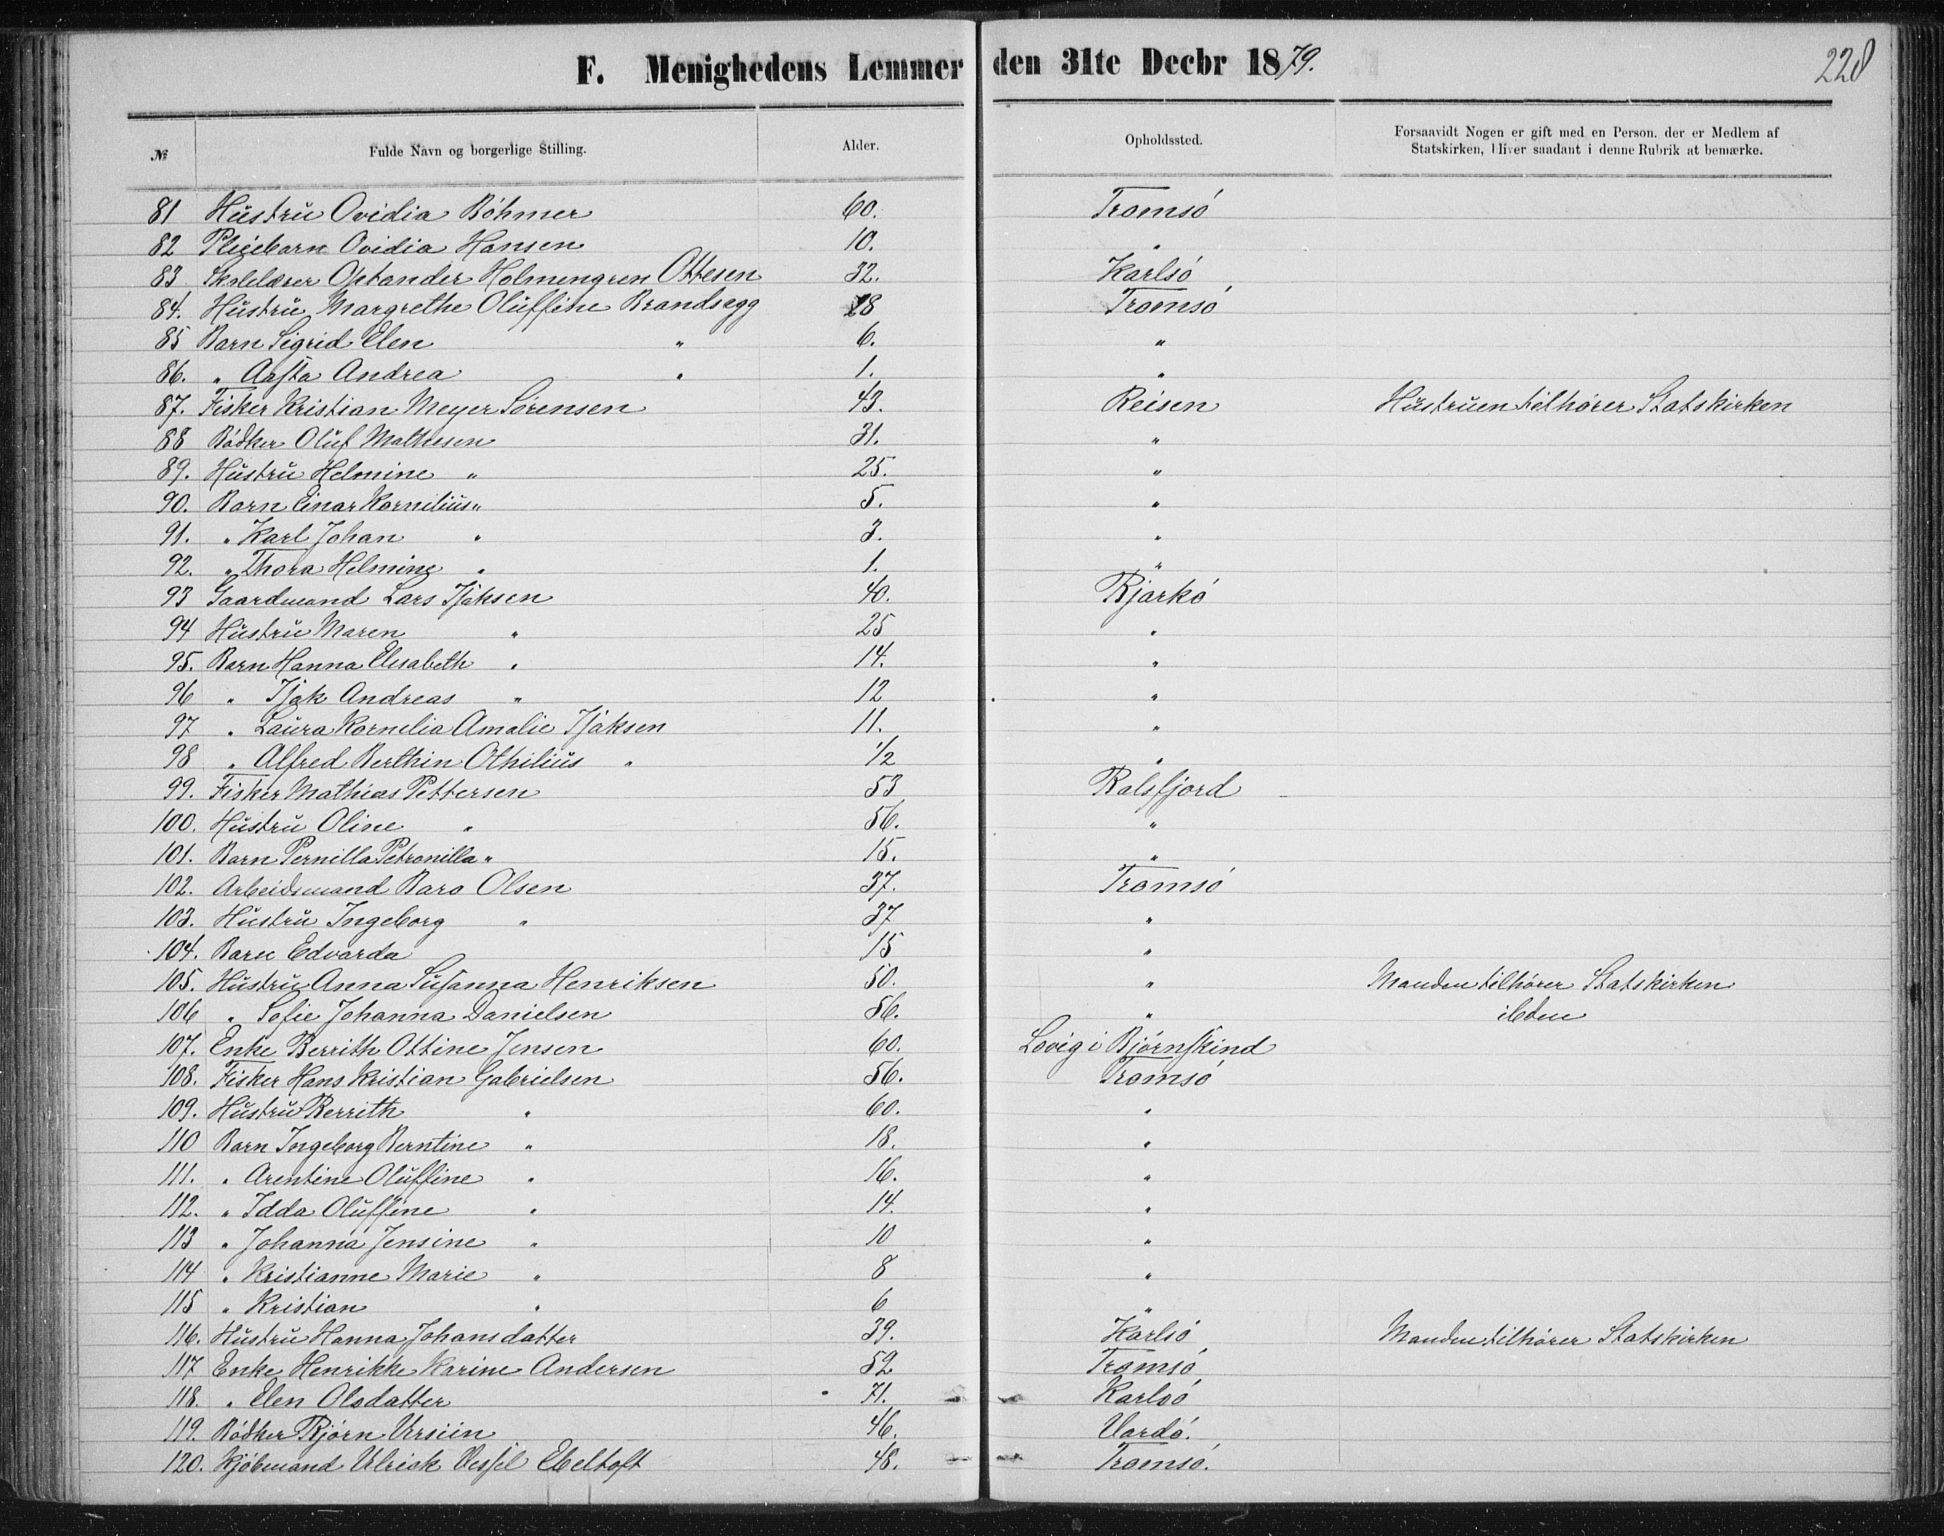 F. Menighedens Lemmer den 31te Decbr 1879. 228
№ Fulde Navn og borgerlige Stilling. Alder. Opholdssted. Forsaavidt Nogen er gift med en Person, der er Medlem af
Statskirken, bliver saadant i denne Rubrik at bemærke.
81 Hustru Ovidia Böhmer 60. Tromsö
82 Pleiebarn Ovidia Hansen 10. "
83 Skolelærer Optander Holmengren Ottesen 32. Karlsö
84. Hustru Margrethe Oluffine Brandsegg 28 Tromsö
85 Barn Sigrid Elen " 6. "
86. " Aasta Andrea " 1. "
87. Fisker Kristian Meyer Sørensen 43. Reisen Hustruen tilhører Statskirken
88 Bödker Oluf Mathesen 31. "
89. Hustru Helmine " 25. "
90. Barn Einar Kornilius " 5. "
91. " Karl Johan " 3. "
92. " Thora Helmine " 1. "
93 Gaardmand Lars Isaksen 40. Bjarkö
94 Hustru Maren " 25 "
95. Barn Hanna Elisabeth " 14. "
96 " Isak Andreas " 12 "
97 " Laura Kornelia Amalie Isaksen 11. "
98 " Alfred Berthin Othilius " 1/2 "
99. Fisker Mathias Pettersen 53 Balsfjord
100. Hustru Oline " 56. "
101. Barn Pernilla Petronilla " 15. "
102. Arbeidsmand Baro Olsen 37. Tromsö
103. Hustru Ingeborg " 37 "
104. Barn Edvarda 15 "
105. Hustru Anna Susanna Henriksen 50. " Manden tilhører Statskirken
106 " Sofie Johanna Danielsen 56. " ibden
107. Enke Berrith Ottine Jensen 60. Lovig i Bjørnskind
108. Fisker Hans Kristian Gabrielsen 56. Tromsö
109. Hustru Berrith " 60. "
110 Barn Ingeborg Berntine " 18. "
111. " Arentine Oluffine " 16. "
112. " Idda Oluffine " 14. "
113 " Johanna Jensine " 10 "
114 " Kristianne Marie " 8 "
115 " Kristian " 6 "
116. Hustru Hanna Johansdatter 39. Karlsö Manden tilhører Statskirken
117 Enke Henrikke Karine Andersen 52 Tromsö
118. " Elen Olsdatter 71. Karlsö
119. Bödker Bjørn Ursin 46. Vardö.
120. Kjöbmand Ulrick Vessel Ebeltoft 48. Tromsö.